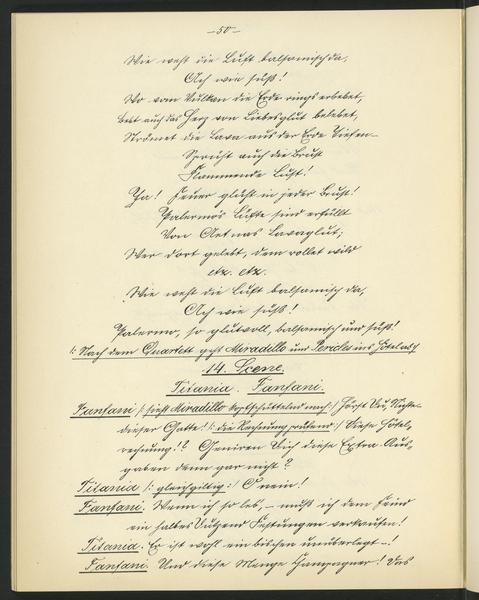 —50—
Wie weht die Luft balsamisch da,
Ach wie süß!
Wo vom Vulkan die Erde rings erbebet,
bebt auch das Herz von Liebesglut belebet,
Strömet die Lava aus der Erde Tiefen
Sprüht auch die Brust
Flammende Lust!
Ha! Feuer glüht in jeder Brust!
Palermos Lüfte sind erfüllt
Von Aetnas Lavaglut;
Wer dort gelebt, dem rollet wild
etz. etz.
Wie weht die Luft balsamisch da,
Ach wie süß!
Palermo, so glutvoll, balsamisch und süß!
/: Nach dem Quartett geht Miradillo und Pericles ins Hôtel ab :/
14. Scene.
Titania. Fanfani.
Fanfani /: sieht Miradillo kopfschüttelnd nach :/ Hörst Du, Nichte
dieser Gatte! /: die Rechnung prüfend :/ Diese Hôtel-
rechnung!? Geniren Dich diese Extra-Aus-
gaben denn gar nicht?
Titania /: gleichgiltig :/ O nein!
Fanfani. Wenn ich so les, – muß ich dem Feind
ein halbes Dutzend Festungen verkaufen!
Titania. Er ist wohl ein bischen unüberlegt –!
Fanfani. Und diese Menge Champagner! Das